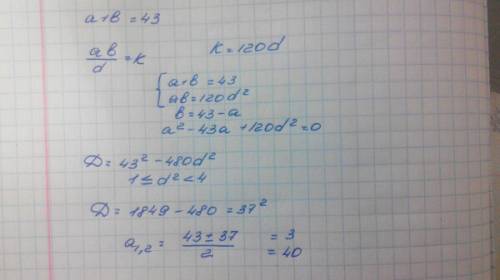 a+b = 43
ab/d = K   K = 120d
{ a+b = 43
ab = 120d²
b = 43 - a
a² - 43a + 120d² = 0
D = 43² - 480d²
1 ≤ d² < 4
D = 1849 - 480 = 37²
a₁,₂ = (43 ± 37)/2 = 3
= 40